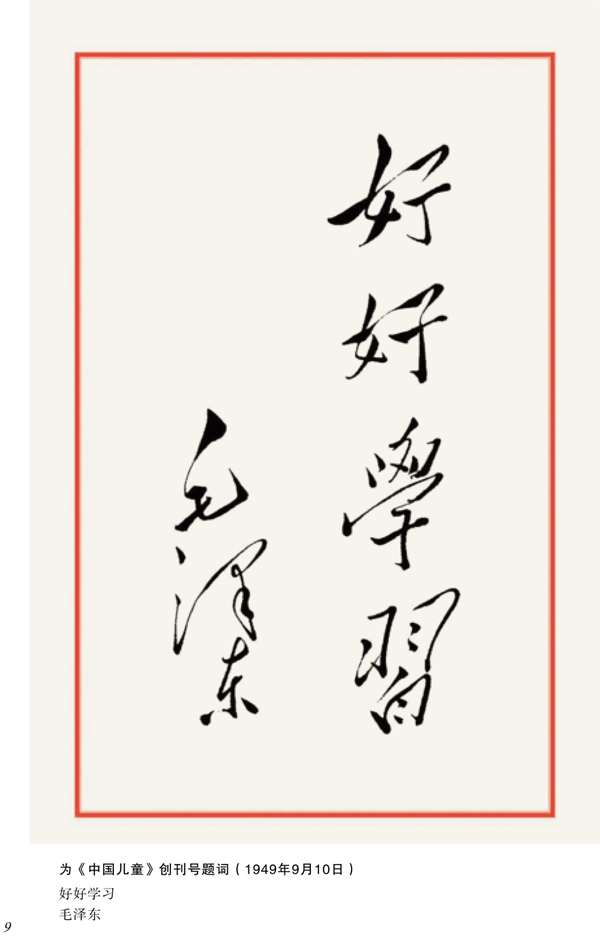 好好學習
毛泽东
为《中国儿童》创刊号题词（1949年9月10日）
好好学习
毛泽东
9